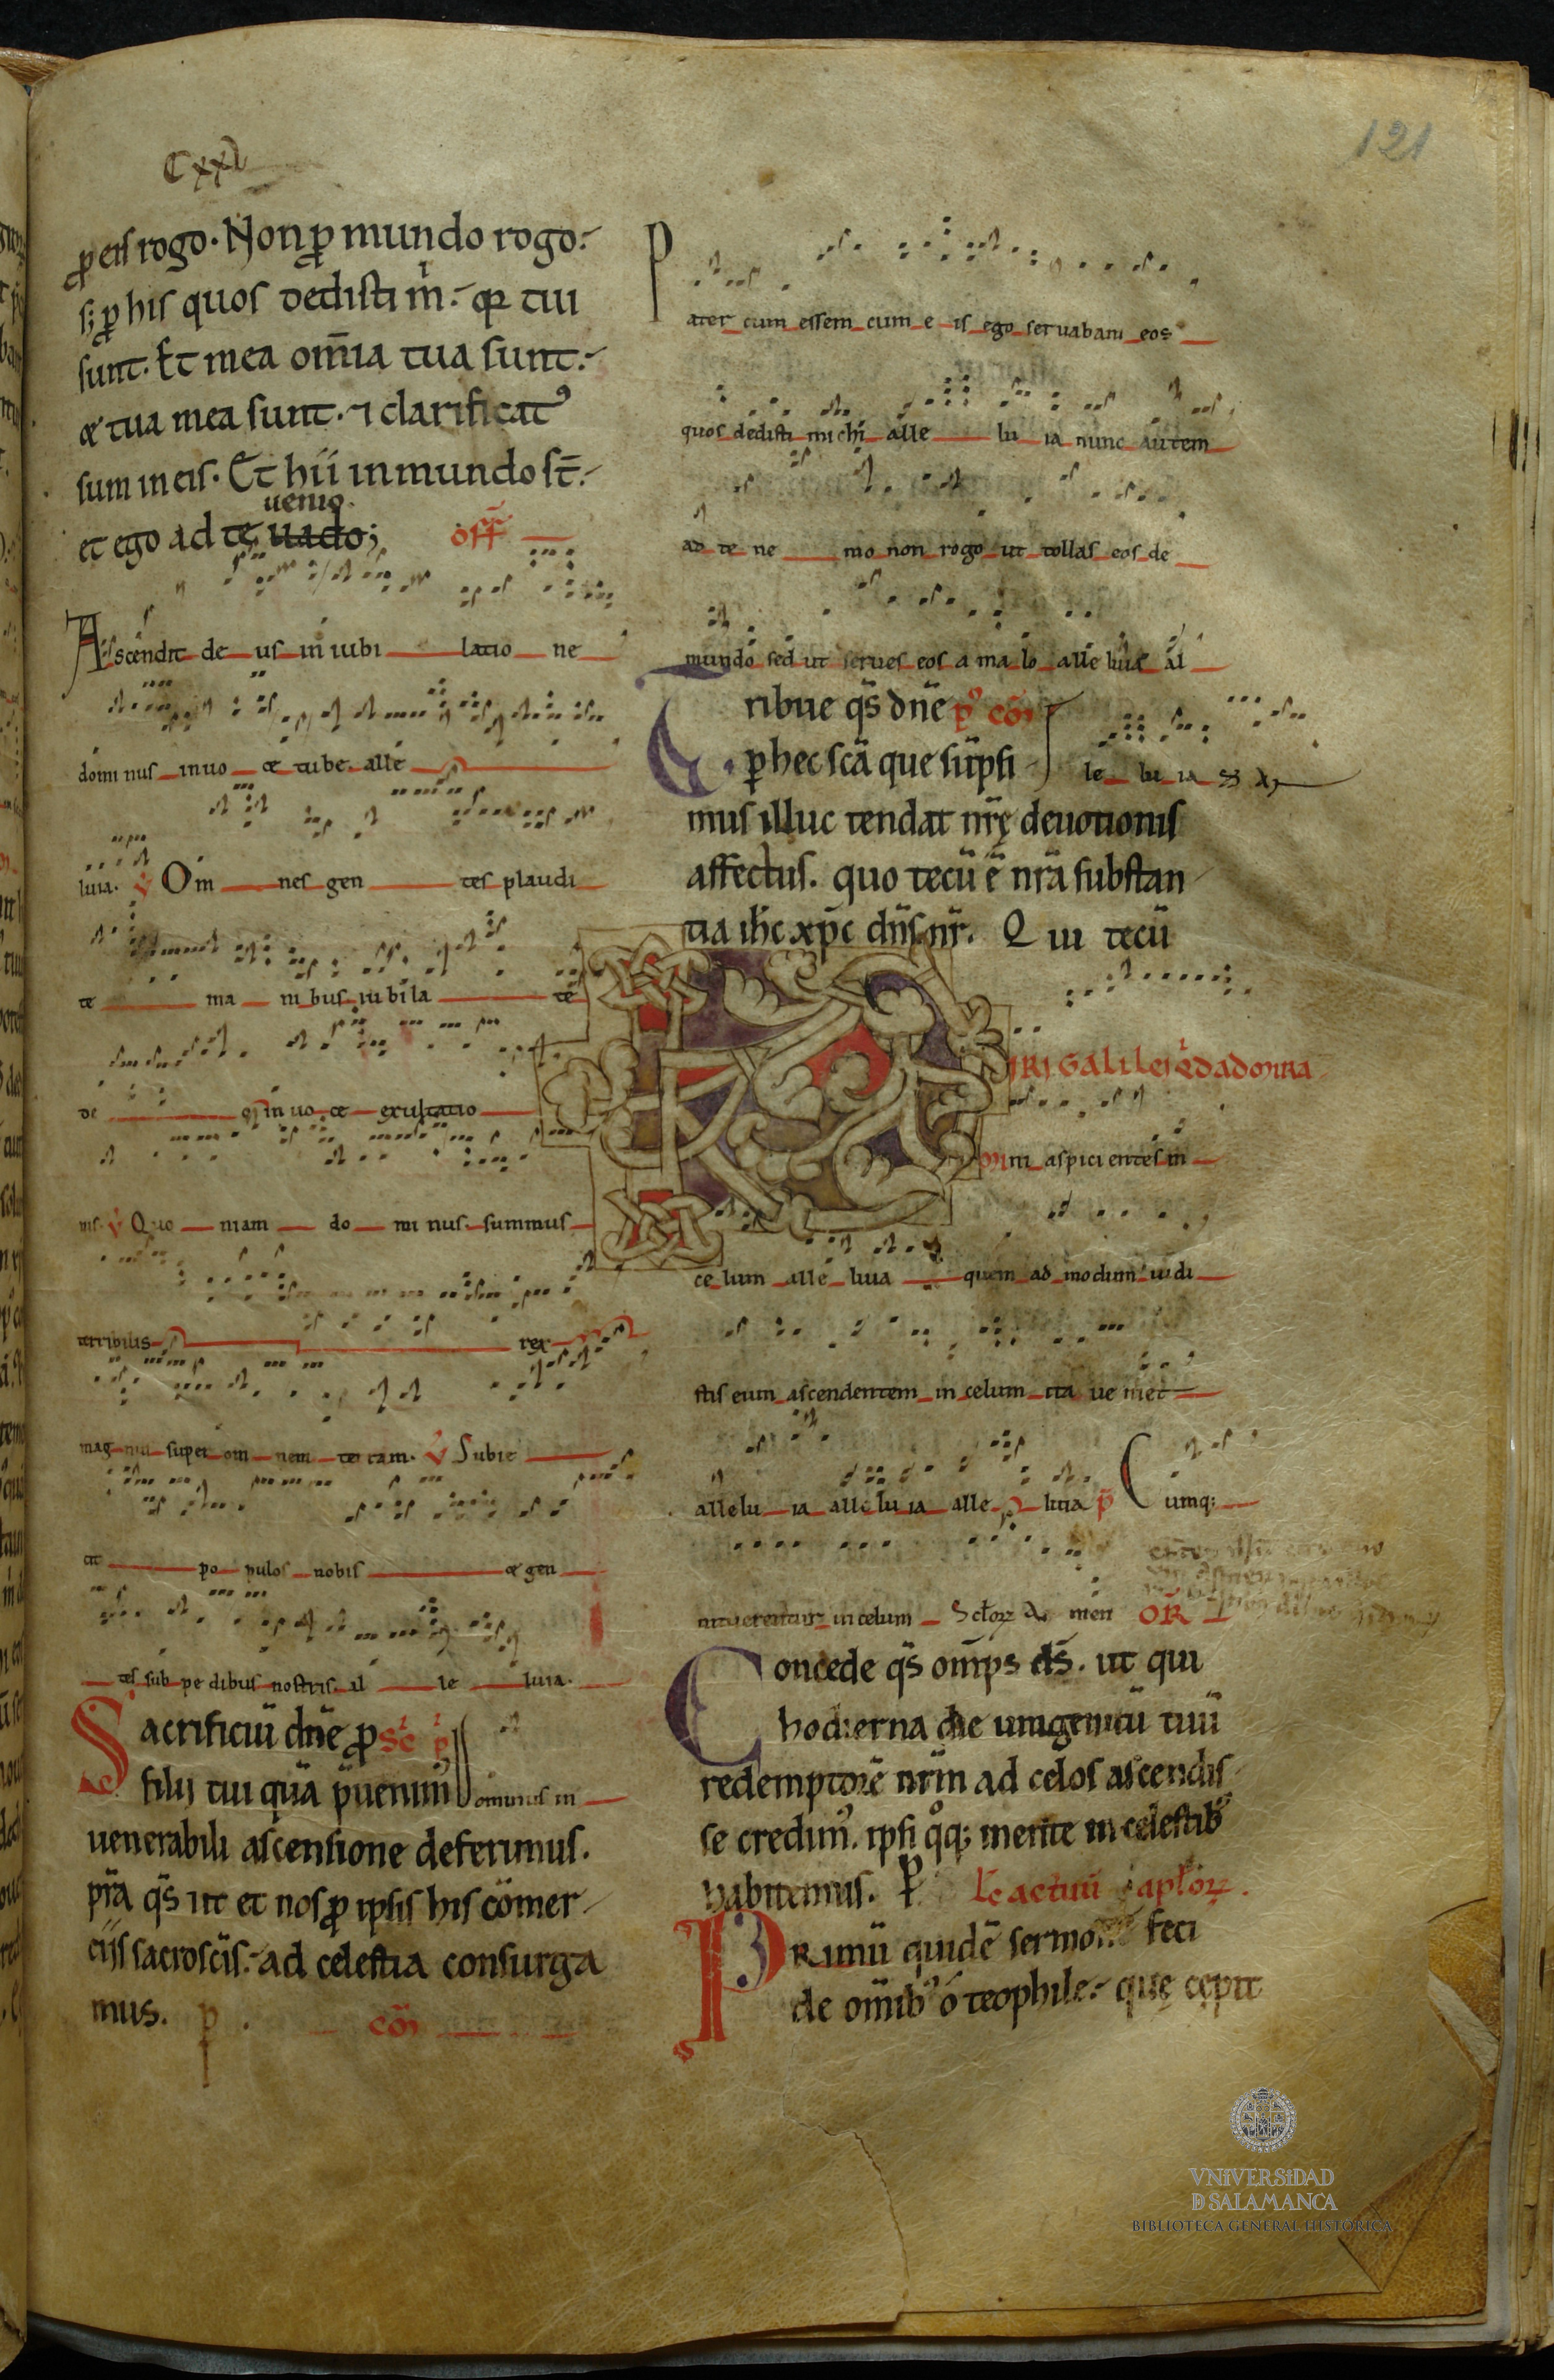 Cxxi
121
ꝓ eis rogo. Non ꝓ mundo rogo.
s; ꝓ his quos dedisti m̅. qr tui
sunt. Et mea om̅ia tua sunt.
& tua mea sunt. ⁊ clarificatꝰ
sum in eis. Et hii in mundo st̅.
uenio.
et ego ad te uado; off̅
Ascendit de us in iubi latio ne
dominus in uo ce tube alle
luia. V Om nes gen tes plaudi
te ma ni bus iubila te
de o in uo ce exultatio
nis. V Quo niam do mi nus summus
terribilis rex
mag nus super om nem terram. V Subie
cit po pulos nobis & gen
tes sub pe dibus nostris al le luia.
Sacrificiu̅ dn̅e ꝓ sc̅
filij tui qua̅ p̅uenim̅ ominus in
uenerabili ascensione deferimus.
p̅ra q̅s ut et nos ꝓ ipsis his co̅mer
ciis sacrosc̅is. ad celestia consurga
mus. p . co̅i
Pater cum essem cum e is ego seruabam eos
quos dedisti michi alle lu ia nunc autem
ad te ne mo non rogo ut tollas eos de
mundo sed ut serues eos a ma lo alle luia al
Tribue q̅s dn̅e pꝰ co̅i
ꝑ hec sc̅a que su̅psi le lu ia
mus illuc tendat nr̅ę deuotionis
affectus. quo tecu̅ e̅ nr̅a substan
tia ih̅c xp̅c dn̅s nr̅. Qui tecu̅
IRI Galilei qd admira
mini aspicientes in
ce lum alle luia quem ad modum uidi
stis eum ascendentem in celum ita ue niet
allelu ia alle lu ia alle luia p̅ Cumq;
intuerentur in celum Sc̅lorꝝ A men OR
Concede q̅s om̅ps ds̅. ut qui
hodierna die unigenitu̅ tuu̅
redemptore̅ nr̅m ad celos ascendis
se credimꝰ. ipsi q̊q; mente in celestibꝰ
habitemus. P Lc̅ actuu̅ apl̅orꝝ.
Primu̅ quide̅ sermone̅ feci
de om̅ibꝰ o teophile. quę cępit
VNIVERSIDAD
D SALAMANCA
BIBLIOTECA GENERAL HISTÓRICA